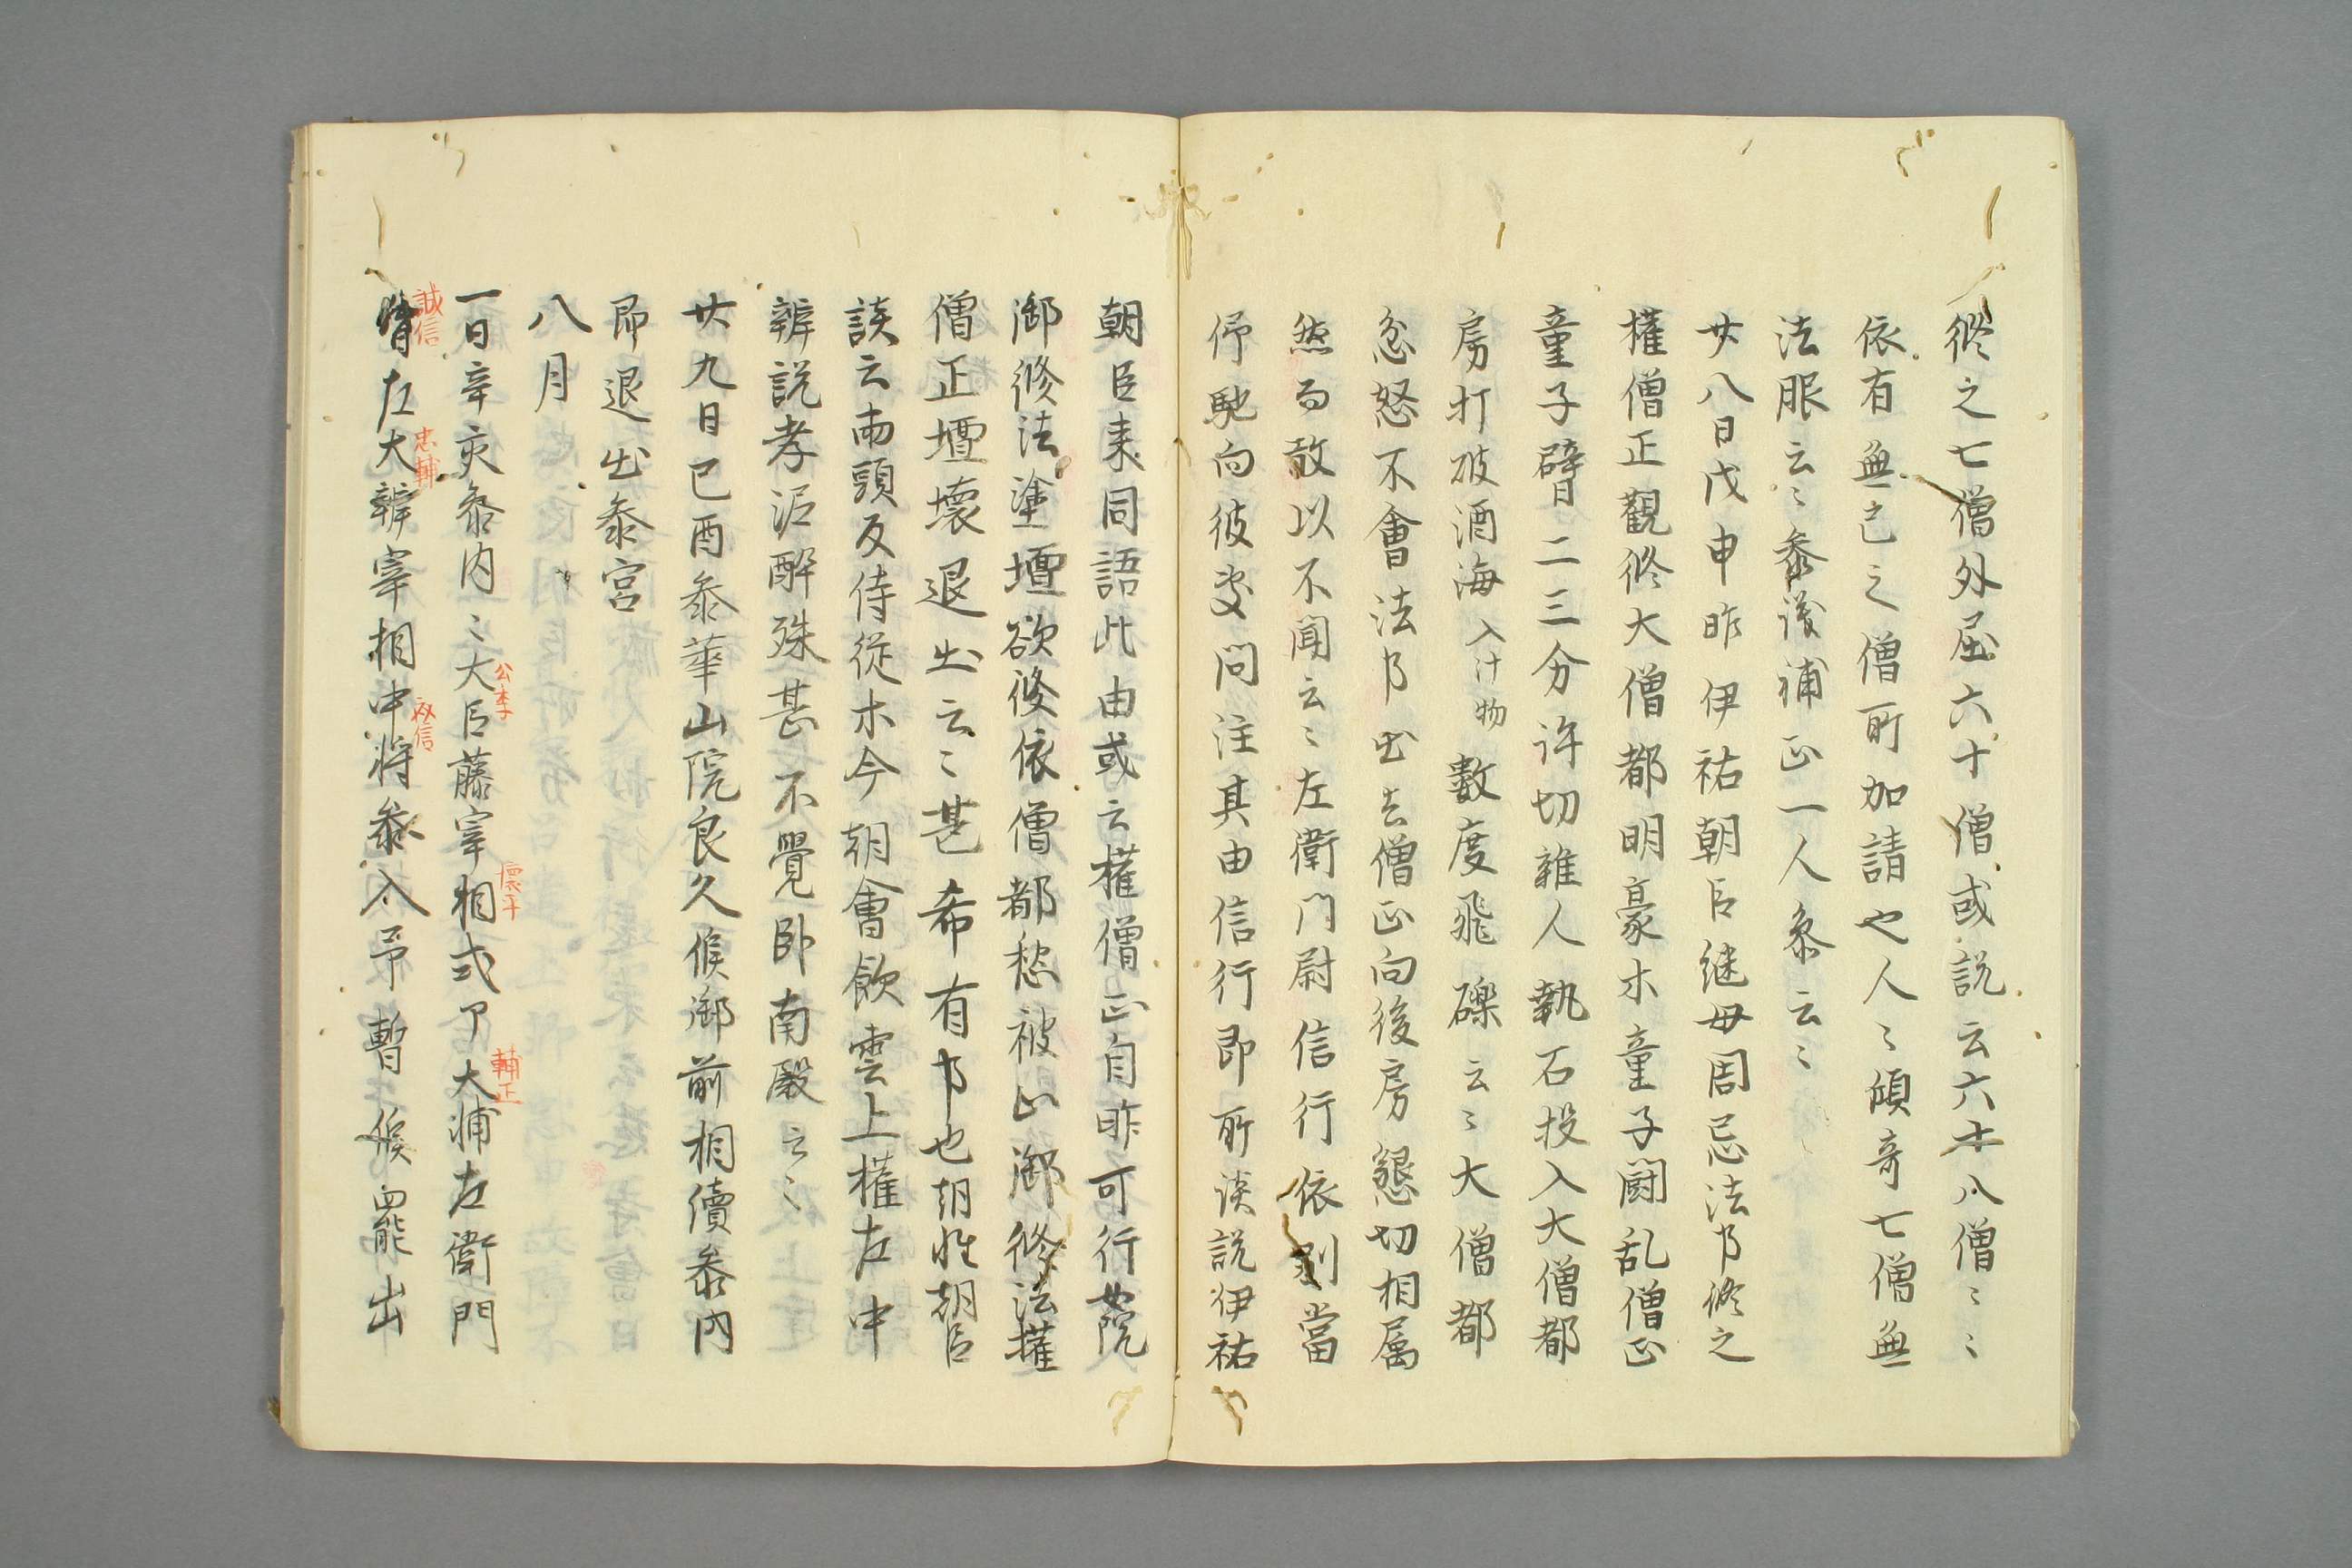 修之七僧外屈六十僧或説云六十八僧〻〻
依有無已之僧所加請也人〻傾奇七僧無
法服云〻泰後補正一人参云〻
廿八日戊申昨伊祐朝臣継母周忌法事修之
權僧正觀修大僧都明豪木童子闘乱僧正
童子臂二三分許切雑人執石投入大僧都
房打破酒海入汁物數度飛礫云〻大僧都
忿怒不會法事出去僧正向後房懇切相属
然而敢以不聞云〻左衛門尉信行依別當
伻馳向彼處問注其由信行即所談説伊祐
朝臣来同語此由或云權僧正自昨可行女院
御修法塗壇欲後依僧都愁被止御修法權
僧正壇壞退出云〻甚希有事也朝性朝臣
談云両頭及侍從木今朝會飲雲上權左中
辨説孝泥酔殊甚不覺臥南殿云〻
廿九日己酉参華山院良久候御前相續参内
即退出参宮
八月
一日辛亥参内〻大臣藤宰相式了大浦左衛門
公季
懐平
輔正
督左大辨宰相中将参入予暫候罷出
誠信
忠輔